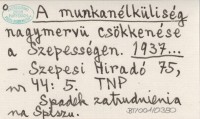 A munkanélküliség
nagymervü csökkenése
a Szepességen. 1937...
– Szepesi Hiradó 75,
nr 44: 5. TNP
Spadek zatrudnienia
na Spiszu.